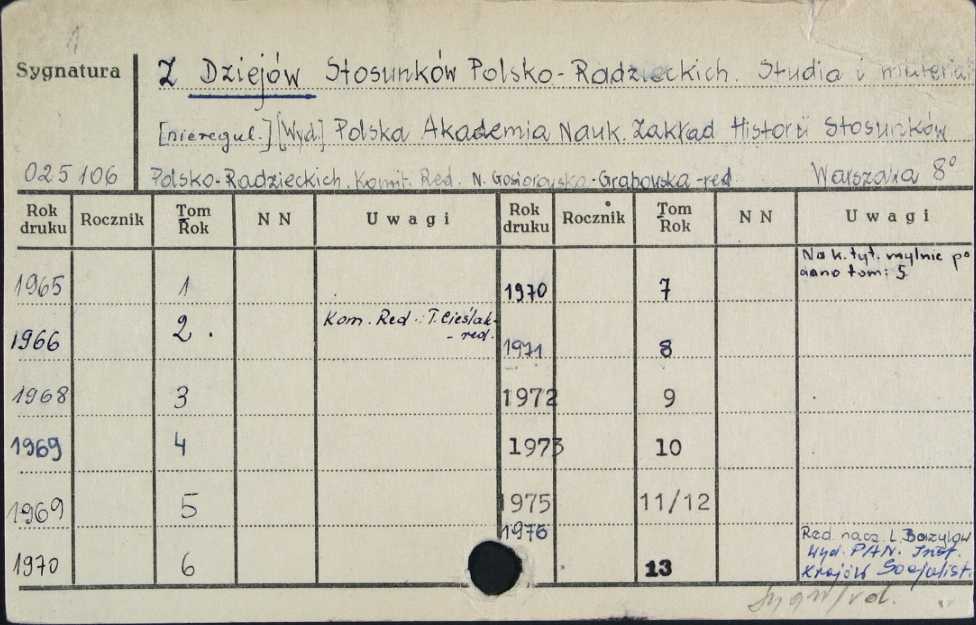 Sygnatura
Z Dziejów Stosunków Polsko-Radzieckich. Studia i materiał
[nieregul.] [Wyd.] Polska Akademia Nauk. Zakład Historii Stosunków
025106 Polsko-Radzieckich. Komit. Red. N. Gąsiorowska-Grabowska-red Warszawa 8°
Rok druku Rocznik Tom Rok N N Uwagi Rok druku Rocznik Tom Rok N N Uwagi
1965 1 1970 7 Na k. tyt. mylnie po
dano tom: 5
1966 2. Kom. Red.: T. Cieślak-
-red. 1971 8
1968 3 1972 9
1969 4 1973 10
1969 5 1975 11/12
1970 6 1976 13 Red. nacz. L. Bazylow
Wyd. PAN. Inst.
Krajów Socjalist.